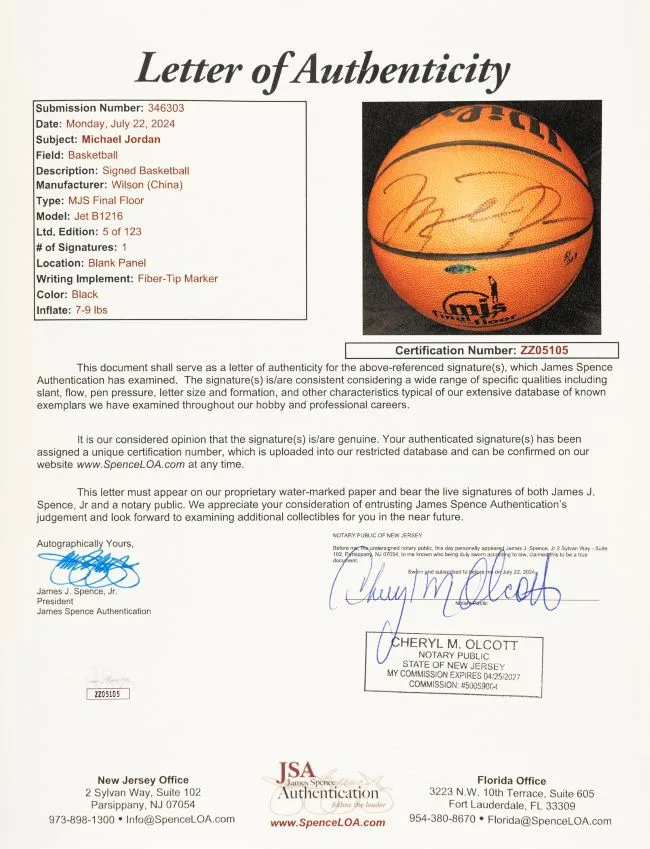 Letter of Authenticity
Submission Number: 346303
Date: Monday, July 22, 2024
Subject: Michael Jordan
Field: Basketball
Description: Signed Basketball
Manufacturer: Wilson (China)
Type: MJS Final Floor
Model: Jet B1216
Ltd. Edition: 5 of 123
# of Signatures: 1
Location: Blank Panel
Writing Implement: Fiber-Tip Marker
Color: Black
Inflate: 7-9 lbs
Wilson
mjs
final floor
Certification Number: ZZ05105
This document shall serve as a letter of authenticity for the above-referenced signature(s), which James Spence
Authentication has examined. The signature(s) is/are consistent considering a wide range of specific qualities including
slant, flow, pen pressure, letter size and formation, and other characteristics typical of our extensive database of known
exemplars we have examined throughout our hobby and professional careers.
It is our considered opinion that the signature(s) is/are genuine. Your authenticated signature(s) has been
assigned a unique certification number, which is uploaded into our restricted database and can be confirmed on our
website www.SpenceLOA.com at any time.
This letter must appear on our proprietary water-marked paper and bear the live signatures of both James J.
Spence, Jr and a notary public. We appreciate your consideration of entrusting James Spence Authentication's
judgement and look forward to examining additional collectibles for you in the near future.
Autographically Yours,
James J. Spence, Jr.
President
James Spence Authentication
NOTARY PUBLIC OF NEW JERSEY
Before me, the undersigned notary public, this day personally appeared James J. Spence, Jr 2 Sylvan Way - Suite
102, Parsippany, NJ 07054, to me known who being duly sworn according to law, claimed this to be a true
document.
Sworn and subscribed to before me on July 22, 2024
Cheryl M Olcott
Notary Public
CHERYL M. OLCOTT
NOTARY PUBLIC
STATE OF NEW JERSEY
MY COMMISSION EXPIRES 04/25/2027
COMMISSION: #50059004
ZZ05105
New Jersey Office
2 Sylvan Way, Suite 102
Parsippany, NJ 07054
973-898-1300 • Info@SpenceLOA.com
JSA
James Spence
Authentication
follow the leader
www.SpenceLOA.com
Florida Office
3223 N.W. 10th Terrace, Suite 605
Fort Lauderdale, FL 33309
954-380-8670 • Florida@SpenceLOA.com